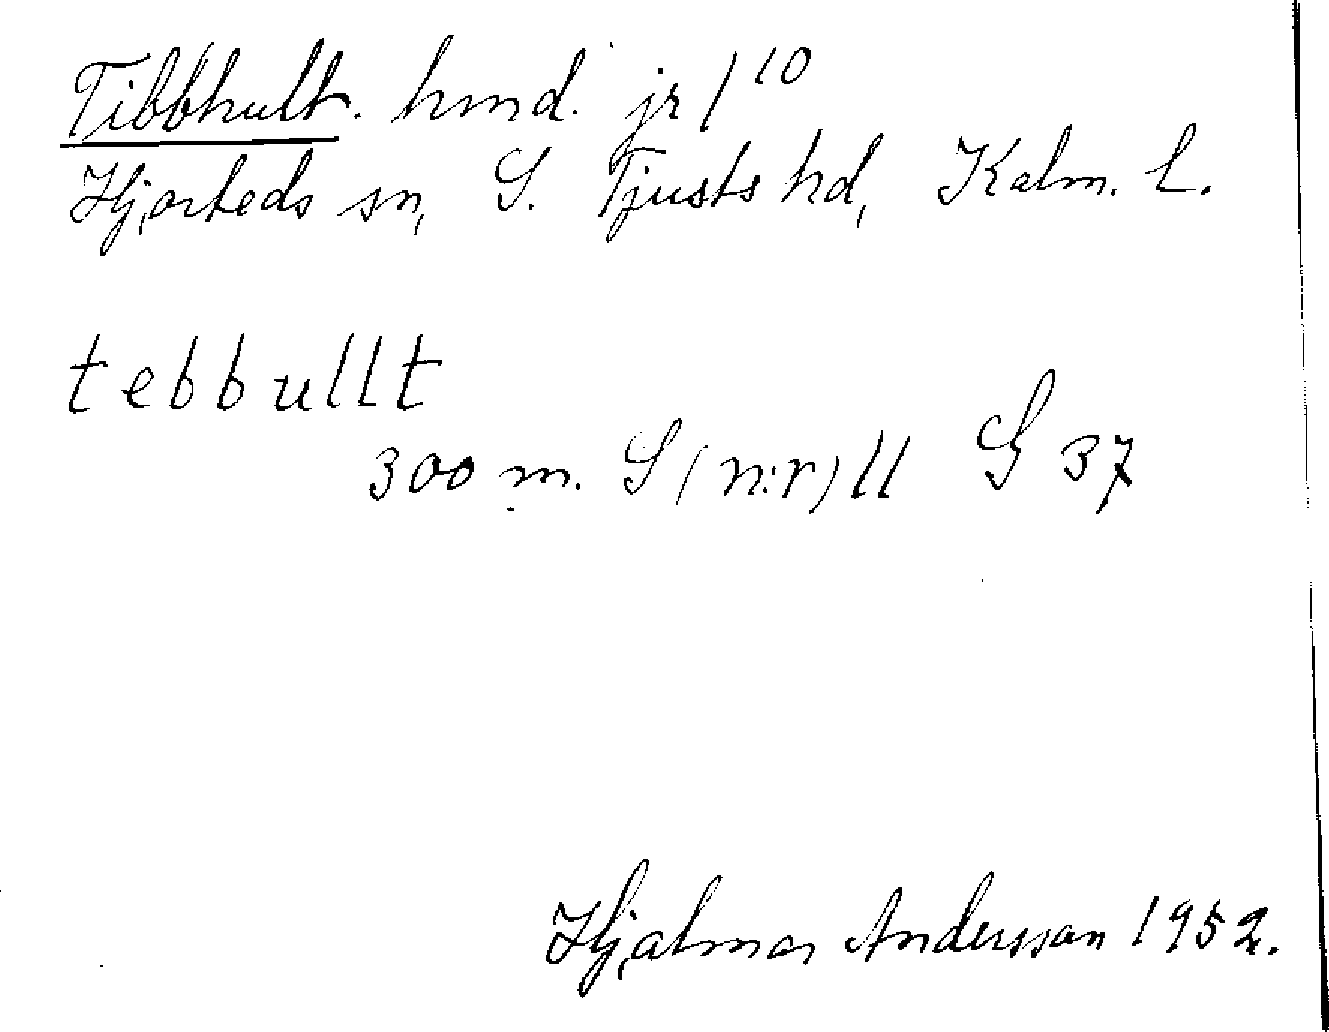 Tibbhult. hmd. jr 1¹⁰
Hjorteds sn, S. Tjusts hd, Kalm. L.
tebbullt
300 m. S (n:r) 11 G 37
Hjalmar Andersson 1952.